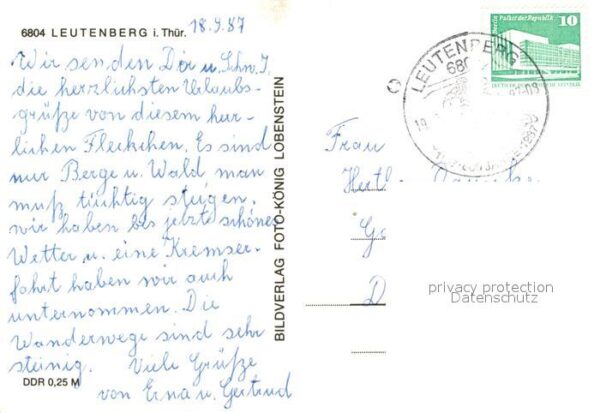 6804 LEUTENBERG i. Thür.
18.9.87
Wir senden Dir u.
die herrlichsten Urlaubs-
grüße von diesem herr-
lichen Fleckchen. Es sind
nur Berge u. Wald man
muß tüchtig steigen,
wir haben bis jetzt schönes
Wetter u. eine Kremser-
fahrt haben wir auch
unternommen. Die
Wanderwege sind sehr
steinig. Viele Grüße
von Erna u. Gertrud
DDR 0,25 M
BILDVERLAG FOTO-KÖNIG LOBENSTEIN
Berlin Palast der Republik 10
DEUTSCHE DEMOKRATISCHE REPUBLIK
LEUTENBERG
Frau
D
privacy protection
Datenschutz